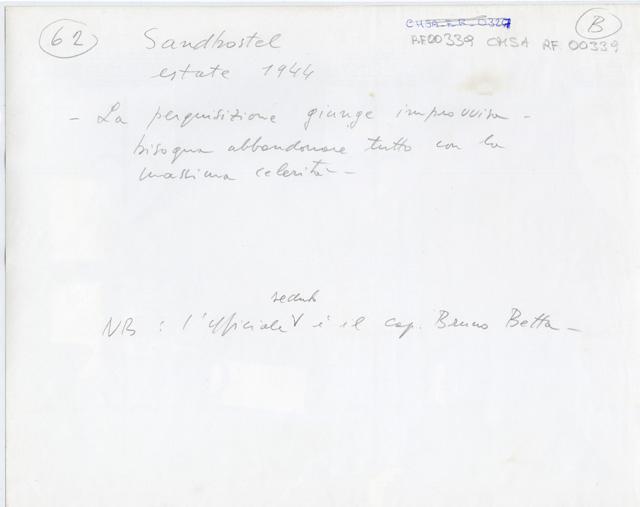 62
Sandbostel
CHSA RF 0327
B
RF00339 CHSA RF 00339
estate 1944
- La perquisizione giunge improvvisa -
bisogna abbandonare tutto con la
massima celerità -
seduto
NB : l'ufficiale è il cap. Bruno Betta -